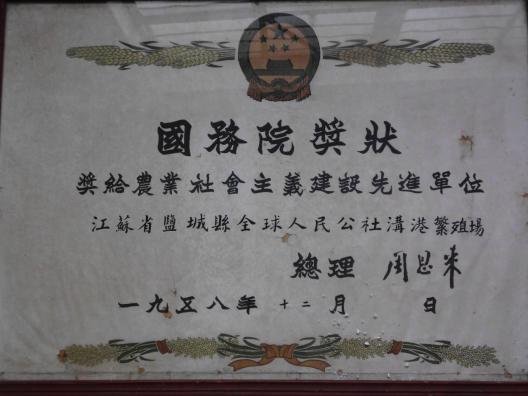 國務院獎狀
獎給農業社會主義建設先進單位
江蘇省鹽城縣全球人民公社溝港繁殖場
總理 周恩來
一九五八年 十二月 日